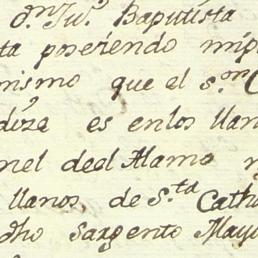 dⁿ Juⁿ. Baptista
ta poseriendo
mismo que el s.ᵒʳ
es en los llan
nel deel Alamo
llanos, de s.ᵗᵃ Cath
dho sargento May